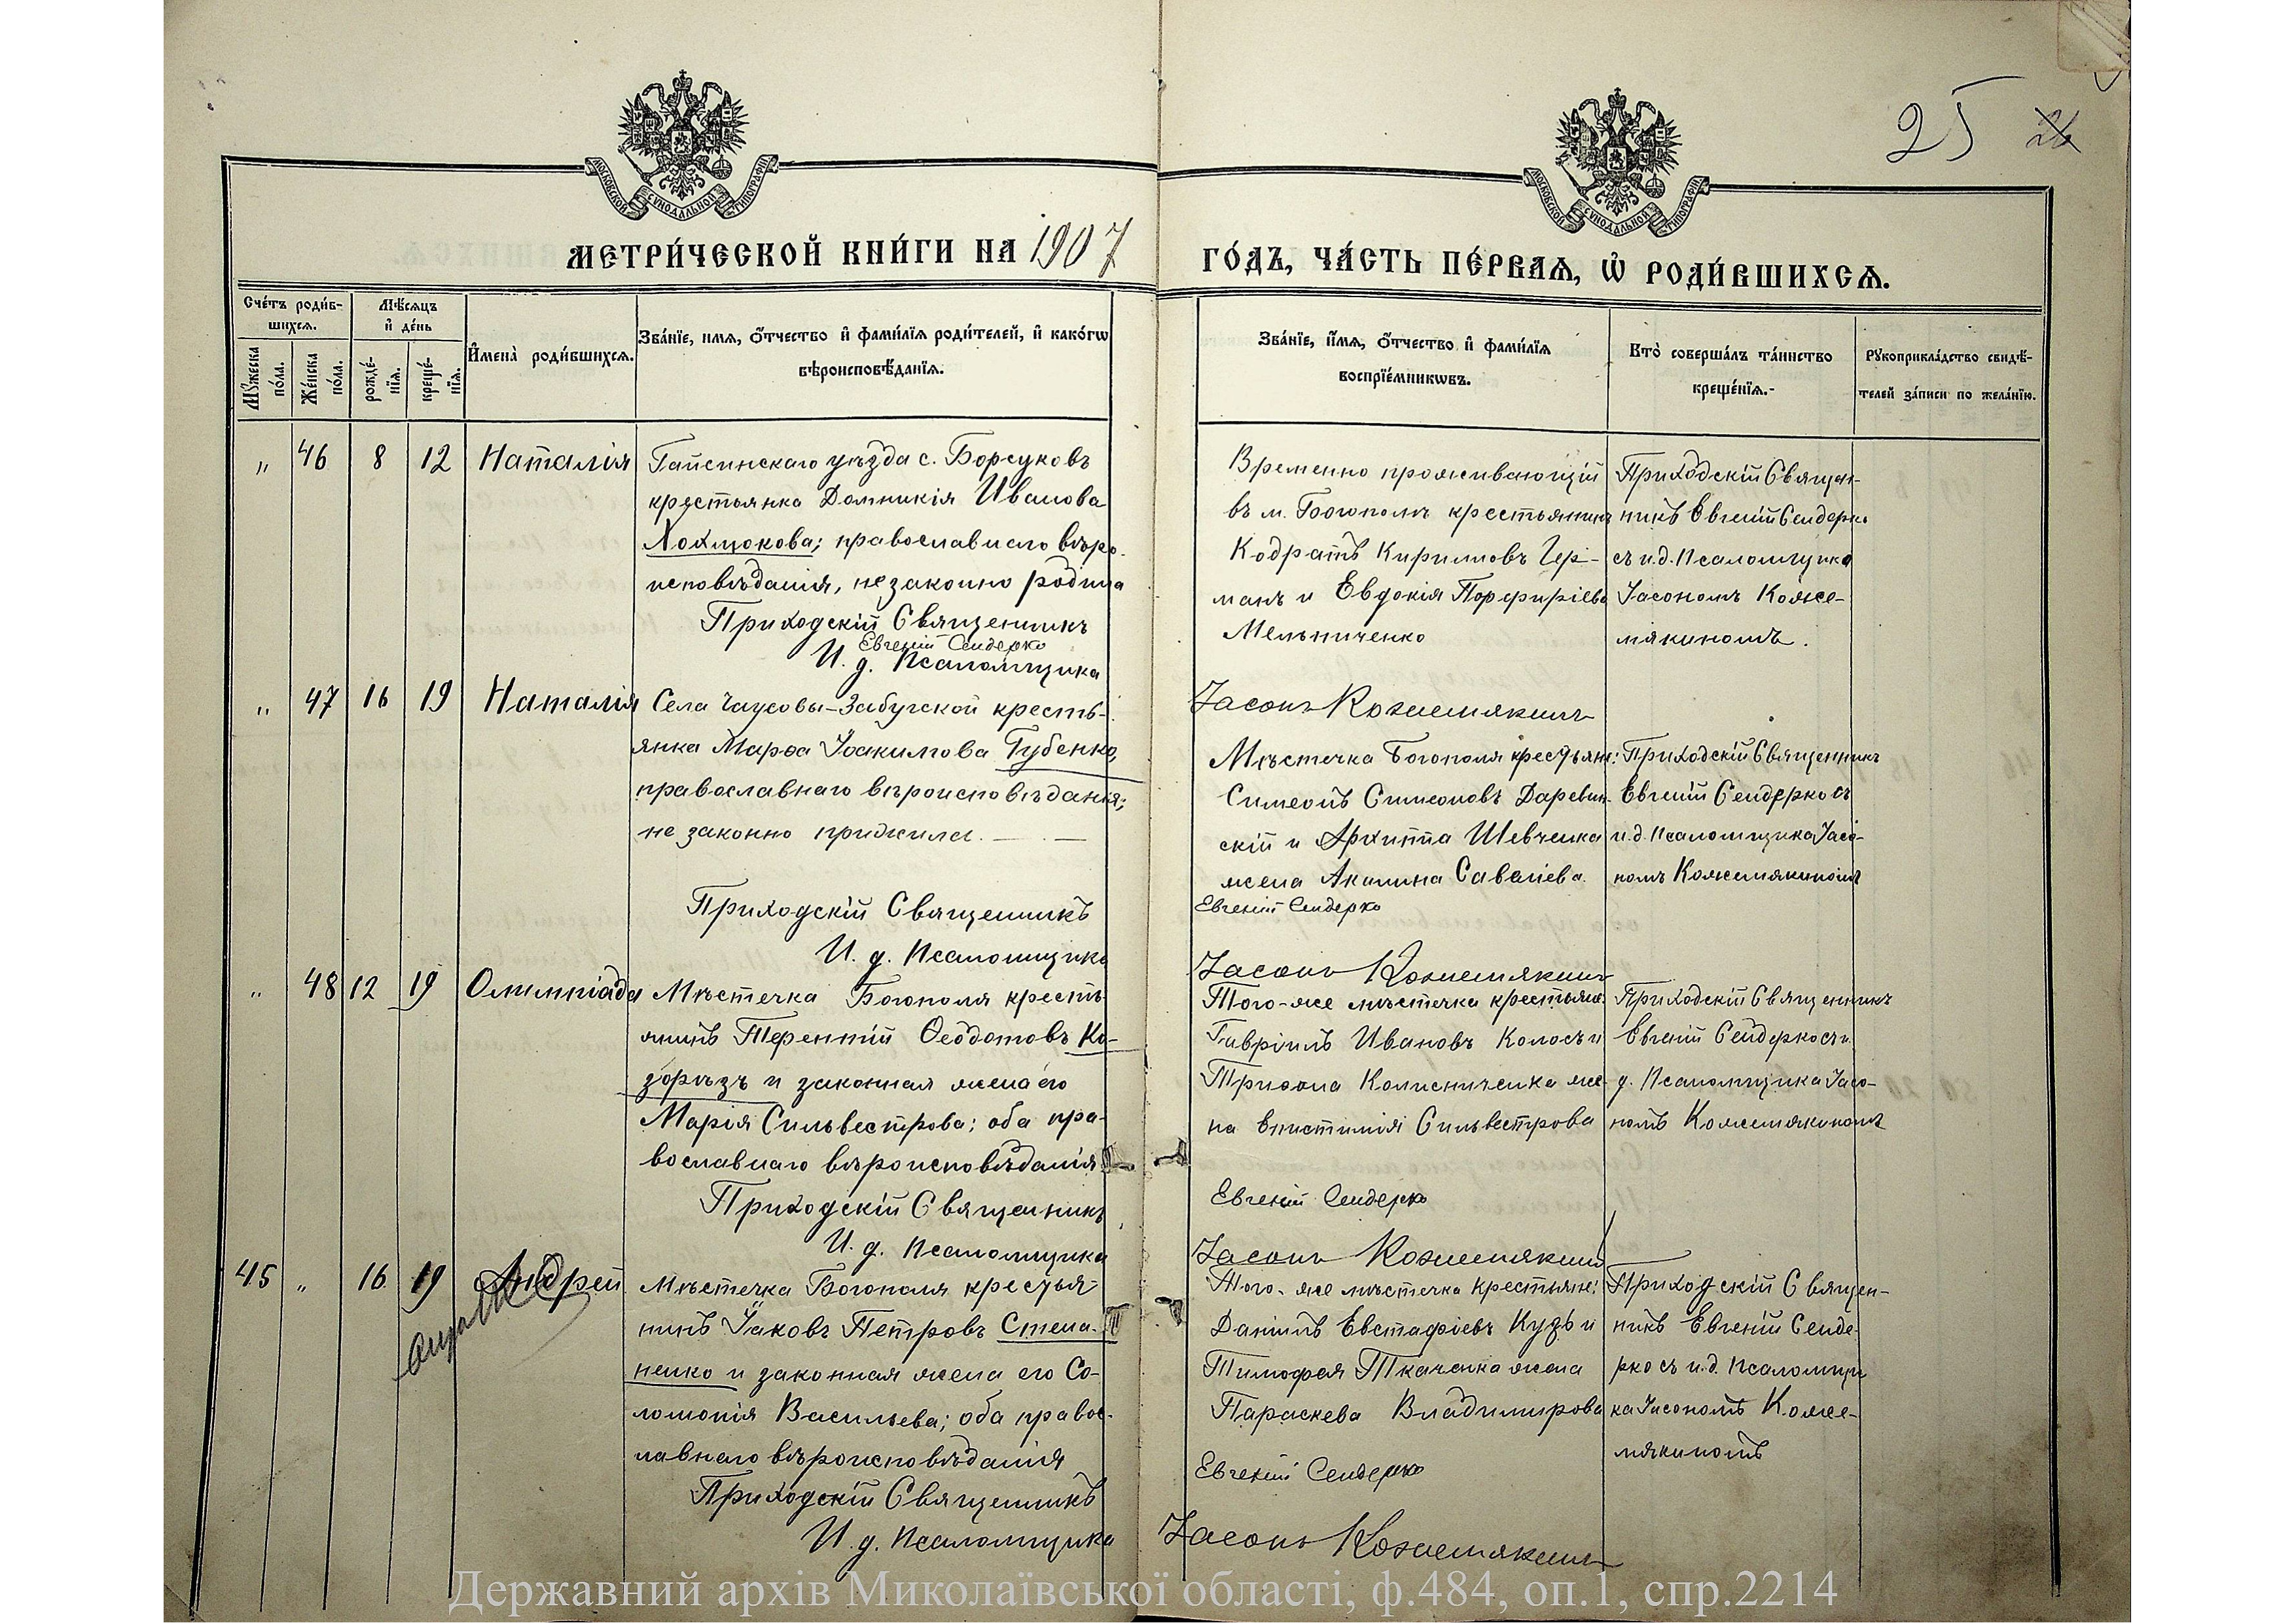 25 26
МОСКОВСКОЙ СѴНОДАЛЬНОЙ ТИПОГРАФІИ
МОСКОВСКОЙ СѴНОДАЛЬНОЙ ТИПОГРАФІИ
МЕТРИ́ЧЕСКОЙ КНИ́ГИ НА 1907
ГО́ДЪ, ЧА́СТЬ ПЕ́РВАѦ, Ѡ҆ РОДИ́ВШИХСѦ.
Сче́тъ роди́в-
шихсѧ.
Мѣ́сѧцъ
и҆ де́нь
Мꙋ́жеска
по́ла.
Же́нска
по́ла.
рожде́-
нїѧ.
креще́-
нїѧ.
И҆мена̀ роди́вшихсѧ.
Зва́нїе, имѧ, ѻ҆́тчество и҆ фами́лїѧ роди́телей, и҆ како́гѡ
вѣроисповѣ́данїѧ.
Зва́нїе, и҆́мѧ, ѻ҆́тчество и҆ фами́лїѧ
воспрїе́мникѡвъ.
Кто̀ соверша́лъ та́инство
креще́нїѧ.
Рꙋкоприкла́дство свидѣ́-
телей за́писи по жела́нїю.
„ 46 8 12 Наталія
Гайсинскаго уѣзда с. Борсуковъ
крестьянка Домникія Иванова
Хохлюкова; православнаго вѣро-
исповѣданія, незаконно родила
Приходскій Священникъ
Евгеній Сендерко
И. д. Псаломщика
Временно проживающій
въ м. Богополѣ крестьянинъ
Кодратъ Кирилловъ Гер-
манъ и Евдокія Порфиріева
Мельниченко
Іасонъ Кожемякинъ
Приходскій Священ-
никъ Евгеній Сендерко
съ и.д. Псаломщика
Іасономъ Коже-
мякиномъ.
„ 47 16 19 Наталія
Села Чаусовы-Забугской кресть-
янка Марѳа Іоакимова Губенко,
православнаго вѣроисповѣданія;
не законно прижила.
Приходскій Священникъ
И. д. Псаломщика
Мѣстечка Богополя крестьяне:
Симеонъ Симеоновъ Даревин-
скій и Архиппа Шевченка
жена Акилина Савелiева.
Евгеній Сендерко
Іасонъ Кожемякинъ
Приходскій Священникъ
Евгеній Сендерко съ
и.д. Псаломщика Іасо-
номъ Кожемякиномъ
„ 48 12 19 Олимпіада
Мѣстечка Богополя кресть-
янинъ Терентій Ѳеодотовъ Ко-
зорѣзъ и законная жена его
Марія Сильвестрова; оба пра-
вославнаго вѣроисповѣданія
Приходскій Священникъ
И. д. Псаломщика
Того-же мѣстечка крестьяне:
Гавріилъ Ивановъ Колосъ и
Трифона Колисниченка же-
на Епистимія Сильвестрова
Евгеній Сендерко
Іасонъ Кожемякинъ
Приходскій Священникъ
Евгеній Сендерко съ и.
д. Псаломщика Іасо-
номъ Кожемякиномъ
45 „ 16 19 Андрей
Мѣстечка Богополя крестья-
нинъ Іаковъ Петровъ Степа-
ненко и законная жена его Со-
ломонія Васильева; оба правос-
лавнаго вѣроисповѣданія
Приходскій Священникъ
И. д. Псаломщика
Того-же мѣстечка крестьяне:
Даніилъ Евстафіевъ Кузь и
Тимофея Ткаченка жена
Параскева Владимирова
Евгеній Сендерко
Іасонъ Кожемякинъ
Приходскій Священ-
никъ Евгеній Сенде-
рко съ и.д. Псаломщи
ка Іасономъ Коже-
мякиномъ
Державний архів Миколаївської області, ф.484, оп.1, спр.2214